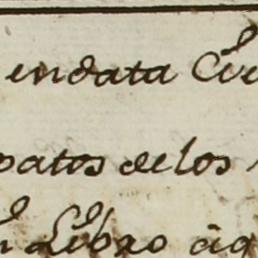 endata
patos de los
Libro aq